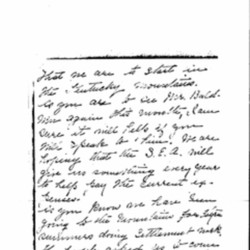 that we are to start in
the Kentucky Mountains.
As you are to see Mr. Bald-
win again this month, I am
sure it will help if you
will speak to him. We are
hoping that the D.E.A. will
give us something every year
to help pay the current ex-
penses.
As you know we have been
going to the mountains for
summers doing Settlement work
who asked us to